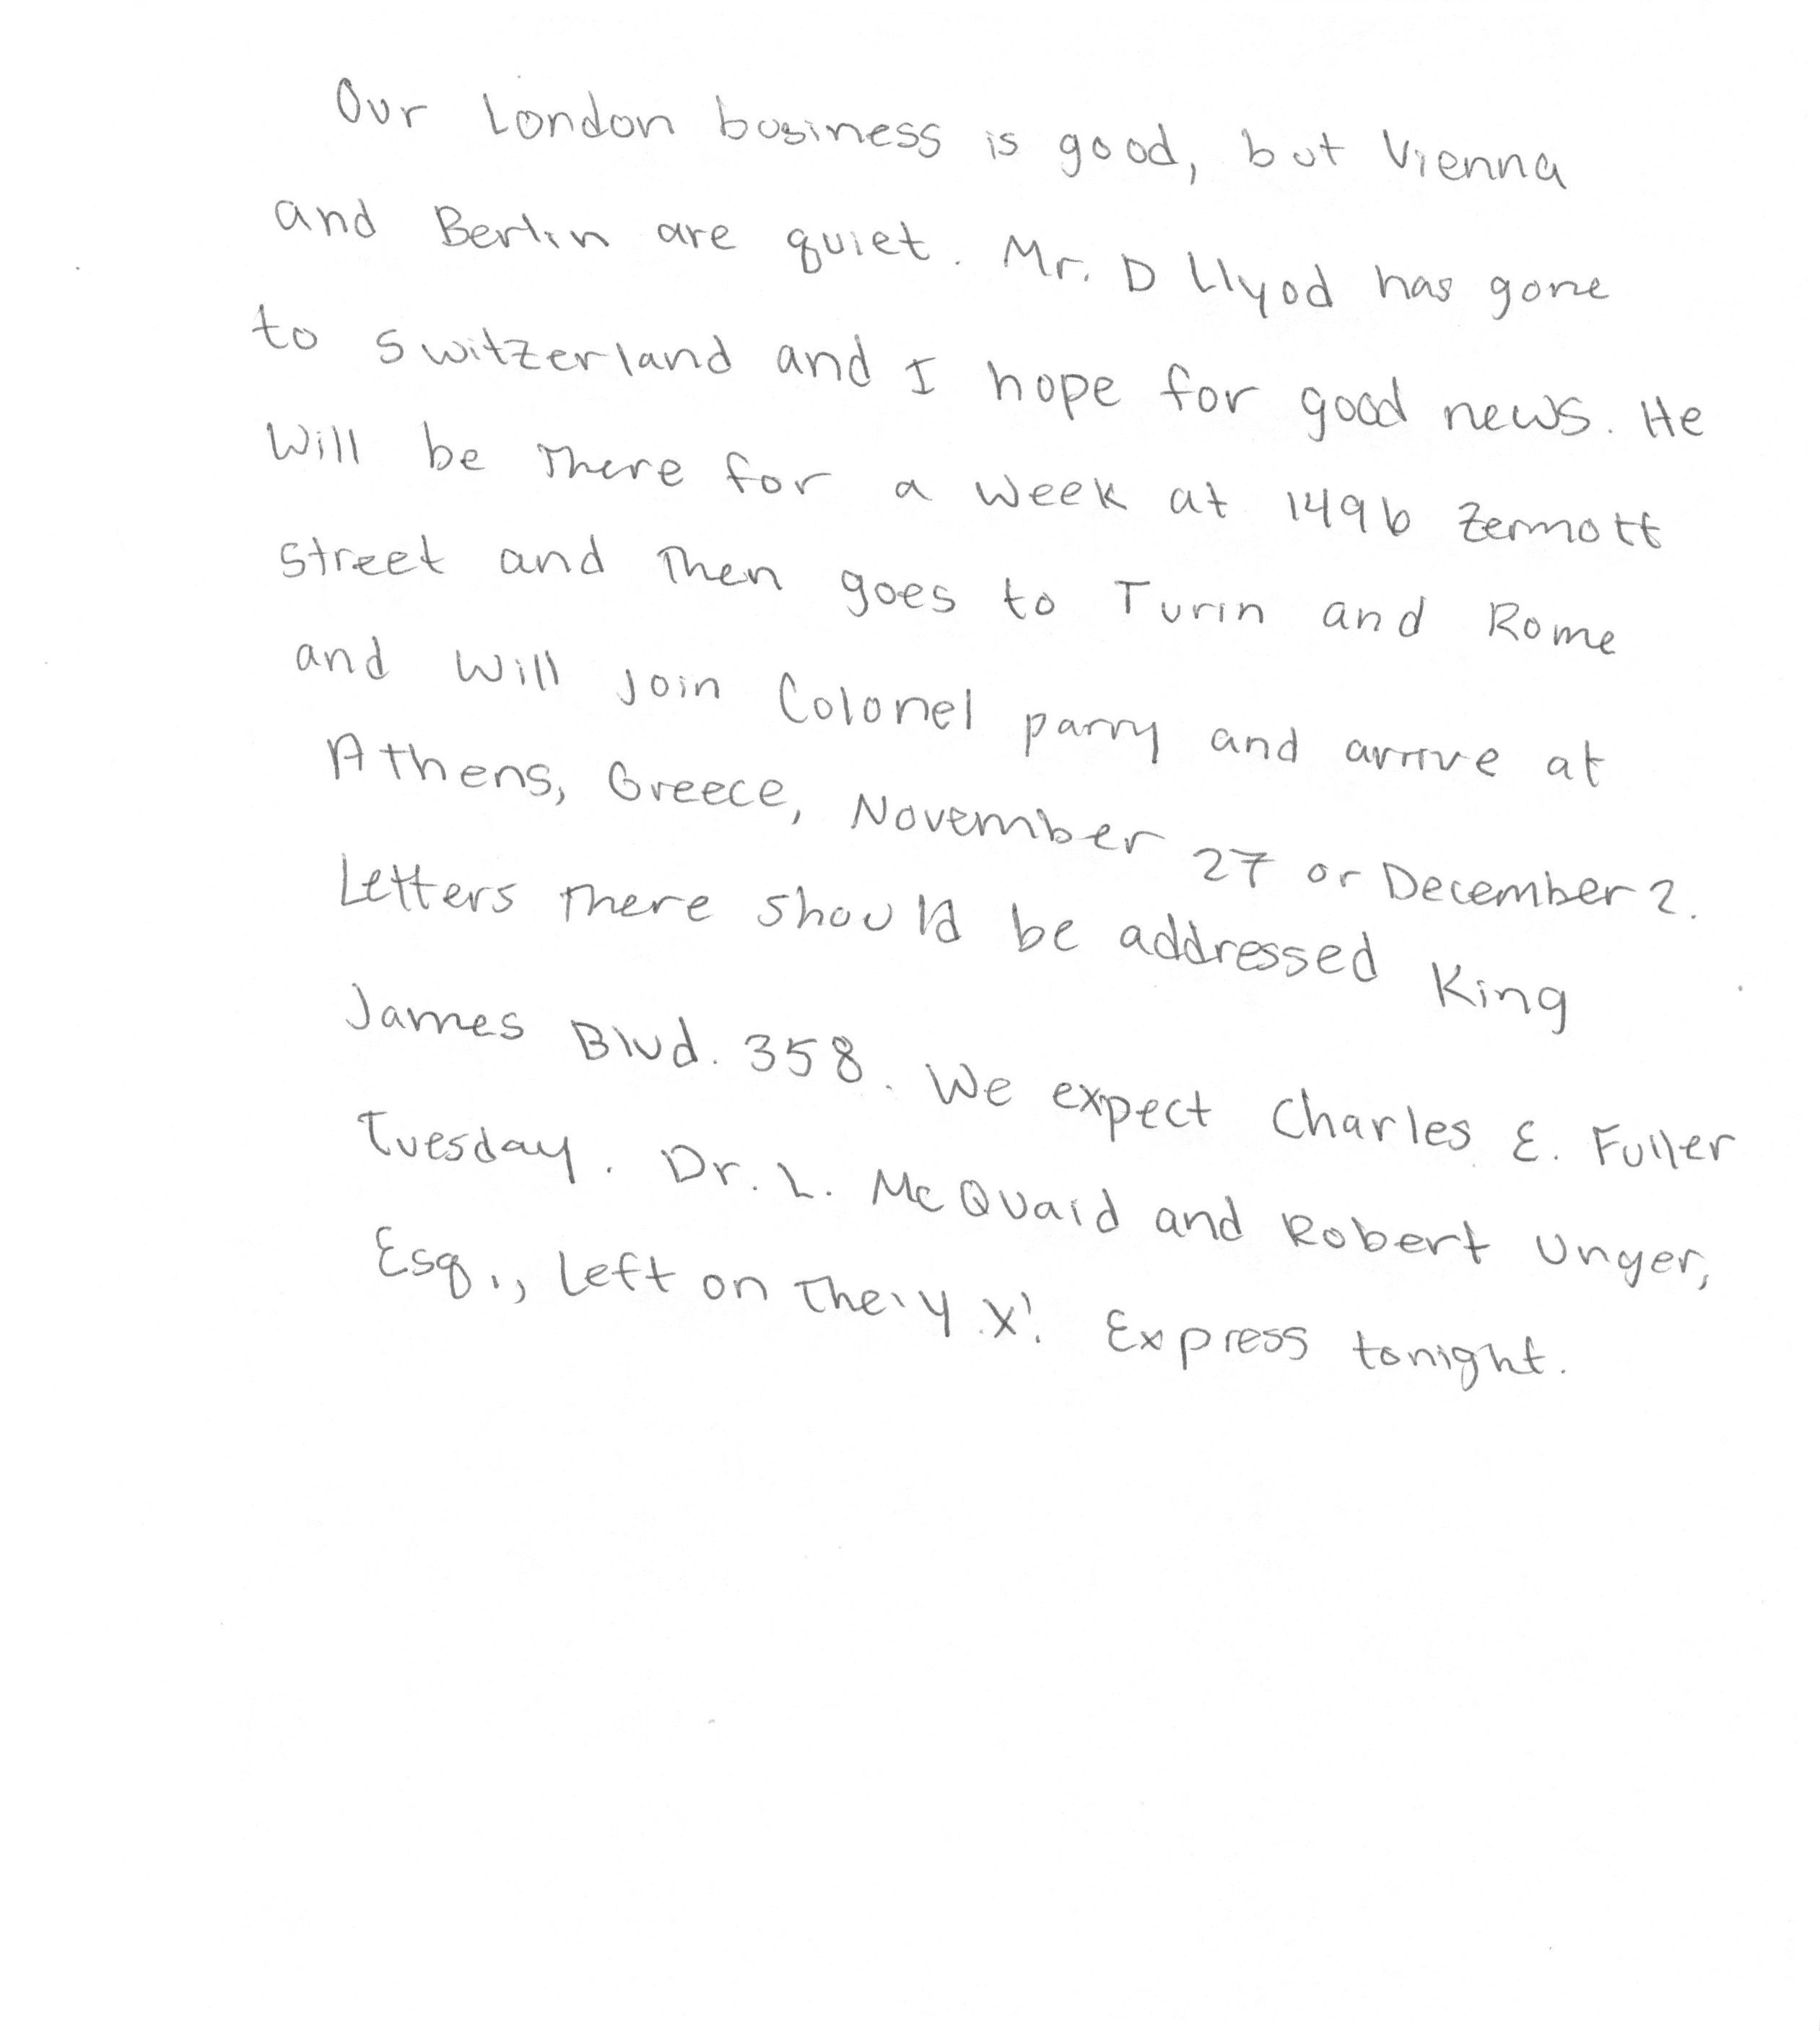 Our London business is good, but Vienna
and Berlin are quiet. Mr. D Llyod has gone
to Switzerland and I hope for good news. He
will be there for a week at 1496 Zermott
street and then goes to Turin and Rome
and will join Colonel parry and arrive at
Athens, Greece, November 27 or December 2.
Letters there should be addressed King
James Blvd. 358. We expect Charles E. Fuller
Tuesday. Dr. L. McQuaid and Robert Unger,
Esq., left on the 'Y.X'. Express tonight.